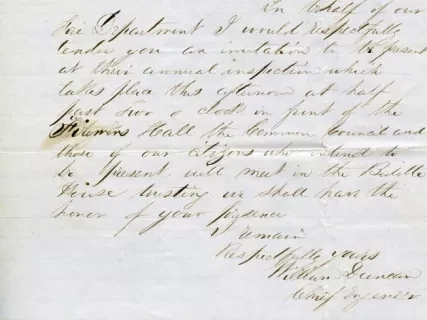 In behalf of our
Fire Department I would respectfully
tender you an invitation to be present
at their annual inspection which
takes place this afternoon at half
past two o clock in front of the
Firemens Hall the Common Council and
those of our citizens who intend to
be present will meet in the
House trusting we shall have the
honor of your presence
I remain
Respectfully yours
William Duncan
Chief Engineer